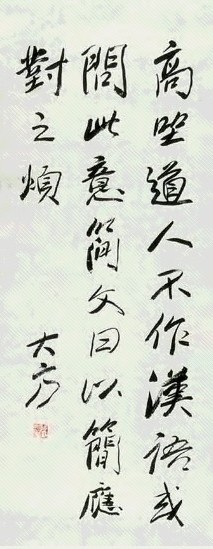 高坐道人不作漢語或
問此意簡文曰以簡應
對之煩
大方